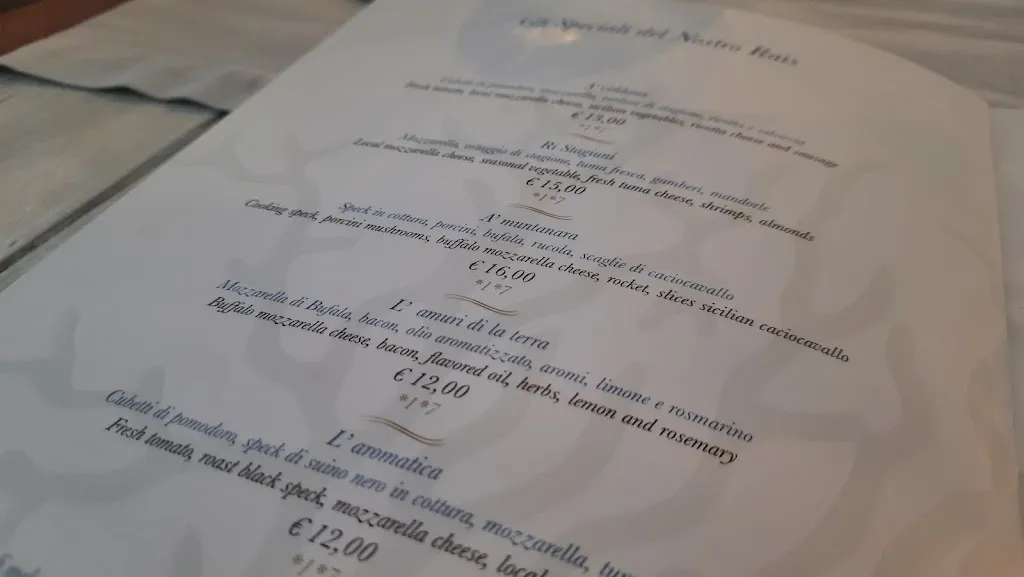 Gli Speciali del Nostro Rais
A'
Cubetti di pomodoro, mozzarella, verdure di stagione, ricotta e salsiccia
Fresh tomato, local mozzarella cheese, sicilian vegetables, ricotta cheese and sausage
€ 13,00
*1*7
Ri Stagiuni
Mozzarella, ortaggio di stagione, tuma fresca, gamberi, mandorle
Local mozzarella cheese, seasonal vegetable, fresh tuma cheese, shrimps, almonds
€ 15,00
*1*7
A' muntanara
Speck in cottura, porcini, bufala, rucola, scaglie di caciocavallo
Cooking speck, porcini mushrooms, buffalo mozzarella cheese, rocket, slices sicilian caciocavallo
€ 16,00
*1*7
L' amuri di la terra
Mozzarella di Bufala, bacon, olio aromatizzato, aromi, limone e rosmarino
Buffalo mozzarella cheese, bacon, flavored oil, herbs, lemon and rosemary
€ 12,00
*1*7
L' aromatica
Cubetti di pomodoro, speck di suino nero in cottura, mozzarella, tum
Fresh tomato, roast black speck, mozzarella cheese, local
€ 12,00
*1*7